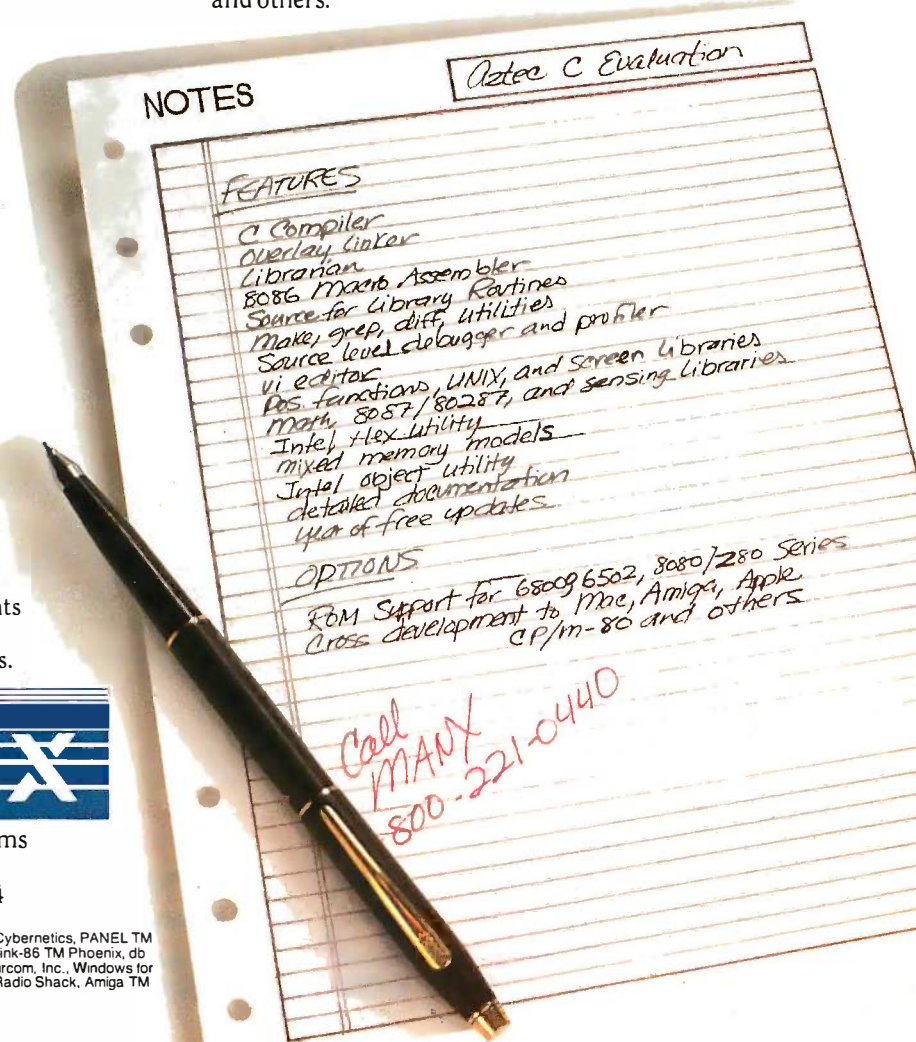 and others.
NOTES
Aztec C Evaluation
FEATURES
C Compiler
Overlay Linker
Librarian
8086 Macro Assembler
Source for Library Routines
Make, grep, diff, utilities
Source level debugger and profiler
vi editor
Dos functions, UNIX, and screen Libraries
math, 8087/80287, and sensing Libraries
Intel Hex utility
mixed memory models
Intel object utility
detailed documentation
year of free updates
OPTIONS
ROM Support for 68009 6502, 8080/Z80 Series
Cross development to Mac, Amiga, Apple
CP/m-80 and others
Call
MANX
800-221-0440
nts
s.
X
ms
4
Cybernetics, PANEL TM
ink-86 TM Phoenix, db
rcom, Inc., Windows for
Radio Shack, Amiga TM